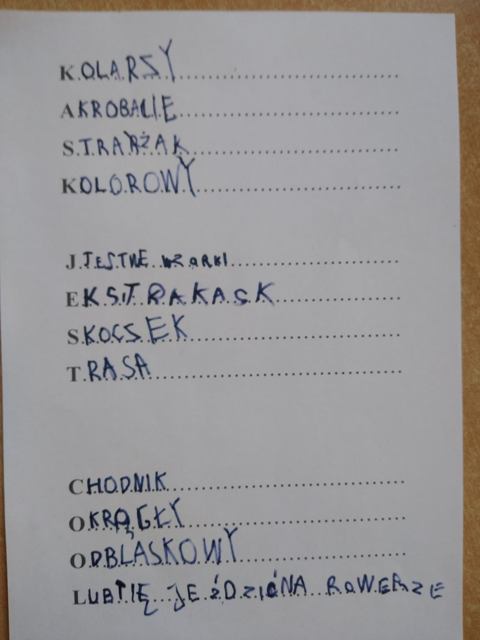 KOLARSY
AKROBALIE
STRARŻAK
KOLOROWY
JJESTNE
EKSTRAKASK
SKOCSEK
TRASA
CHODNIK
OKRĄGŁY
ODBLASKOWY
LUBIĘ JEŹDZIĆNA ROWERZE